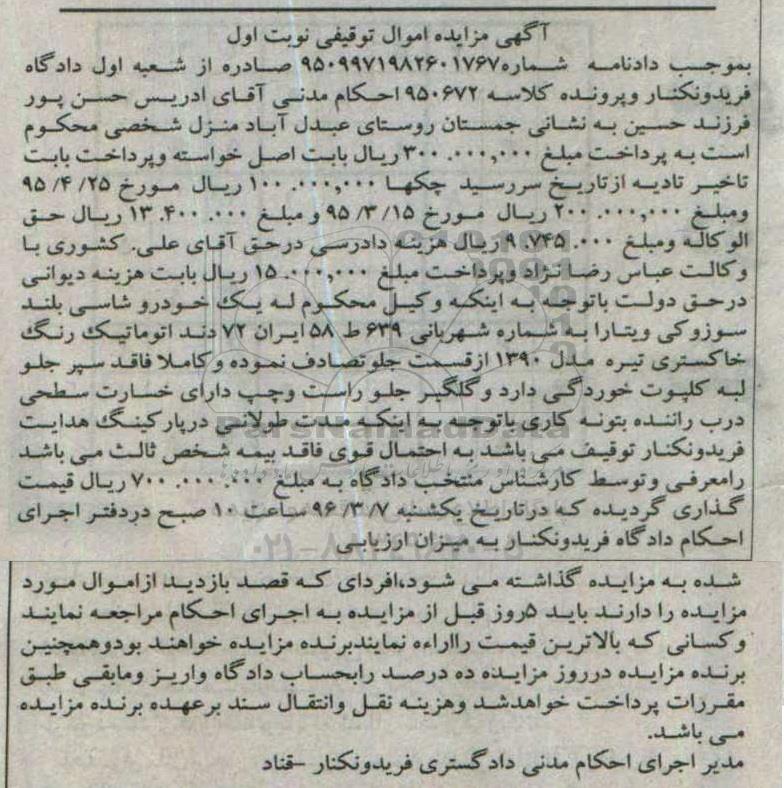 آگهی مزایده اموال توقیفی نوبت اول
بموجب دادنامه شماره۹۵۰۹۹۷۱۹۸۲۶۰۱۷۶۷ صادره از شعبه اول دادگاه
فریدونکنار وپرونده کلاسه ۹۵۰۶۷۲ احکام مدنی آقای ادریس حسن پور
فرزند حسین به نشانی جمستان روستای عبدل آباد منزل شخصی محکوم
است به پرداخت مبلغ ۳۰۰.۰۰۰,۰۰۰ ریال بابت اصل خواسته وپرداخت بابت
تاخیر تادیه ازتاریخ سررسید چکها ۱۰۰.۰۰۰,۰۰۰ ریال مورخ ۹۵/۴/۲۵
ومبلغ ۲۰۰.۰۰۰,۰۰۰ ریال مورخ ۹۵/۳/۱۵ و مبلغ ۱۳.۴۰۰.۰۰۰ ریال حق
الوکاله ومبلغ ۹.۷۴۵.۰۰۰ ریال هزینه دادرسی درحق آقای علی. کشوری با
وکالت عباس رضا نژاد وپرداخت مبلغ ۱۵.۰۰۰,۰۰۰ ریال بابت هزینه دیوانی
درحق دولت باتوجه به اینکه وکیل محکوم له یک خودرو شاسی بلند
سوزوکی ویتارا به شماره شهربانی ۶۳۹ ط ۵۸ ایران ۷۲ دند اتوماتیک رنگ
خاکستری تیره مدل ۱۳۹۰ ازقسمت جلو تصادف نموده و کاملا فاقد سپر جلو
لبه کلپوت خوردگی دارد و گلگیر جلو راست وچپ دارای خسارت سطحی
درب راننده بتونه کاری باتوجه به اینکه مدت طولانی درپارکینگ هدایت
فریدونکنار توقیف می باشد به احتمال قوی فاقد بیمه شخص ثالث می باشد
رامعرفی وتوسط کارشناس منتخب دادگاه به مبلغ ۷۰۰.۰۰۰.۰۰۰ ریال قیمت
گذاری گردیده که درتاریخ یکشنبه ۹۶/۳/۷ ساعت ۱۰ صبح دردفتر اجرای
احکام دادگاه فریدونکنار به میزان ارزیابی
شده به مزایده گذاشته می شود،افرادی که قصد بازدید ازاموال مورد
مزایده را دارند باید ۵روز قبل از مزایده به اجرای احکام مراجعه نمایند
وکسانی که بالاترین قیمت رااراءه نمایندبرنده مزایده خواهند بودوهمچنین
برنده مزایده درروز مزایده ده درصد رابحساب دادگاه واریز ومابقی طبق
مقررات پرداخت خواهدشد وهزینه نقل وانتقال سند برعهده برنده مزایده
می باشد.
مدیر اجرای احکام مدنی دادگستری فریدونکنار -قناد
ParsNamadData